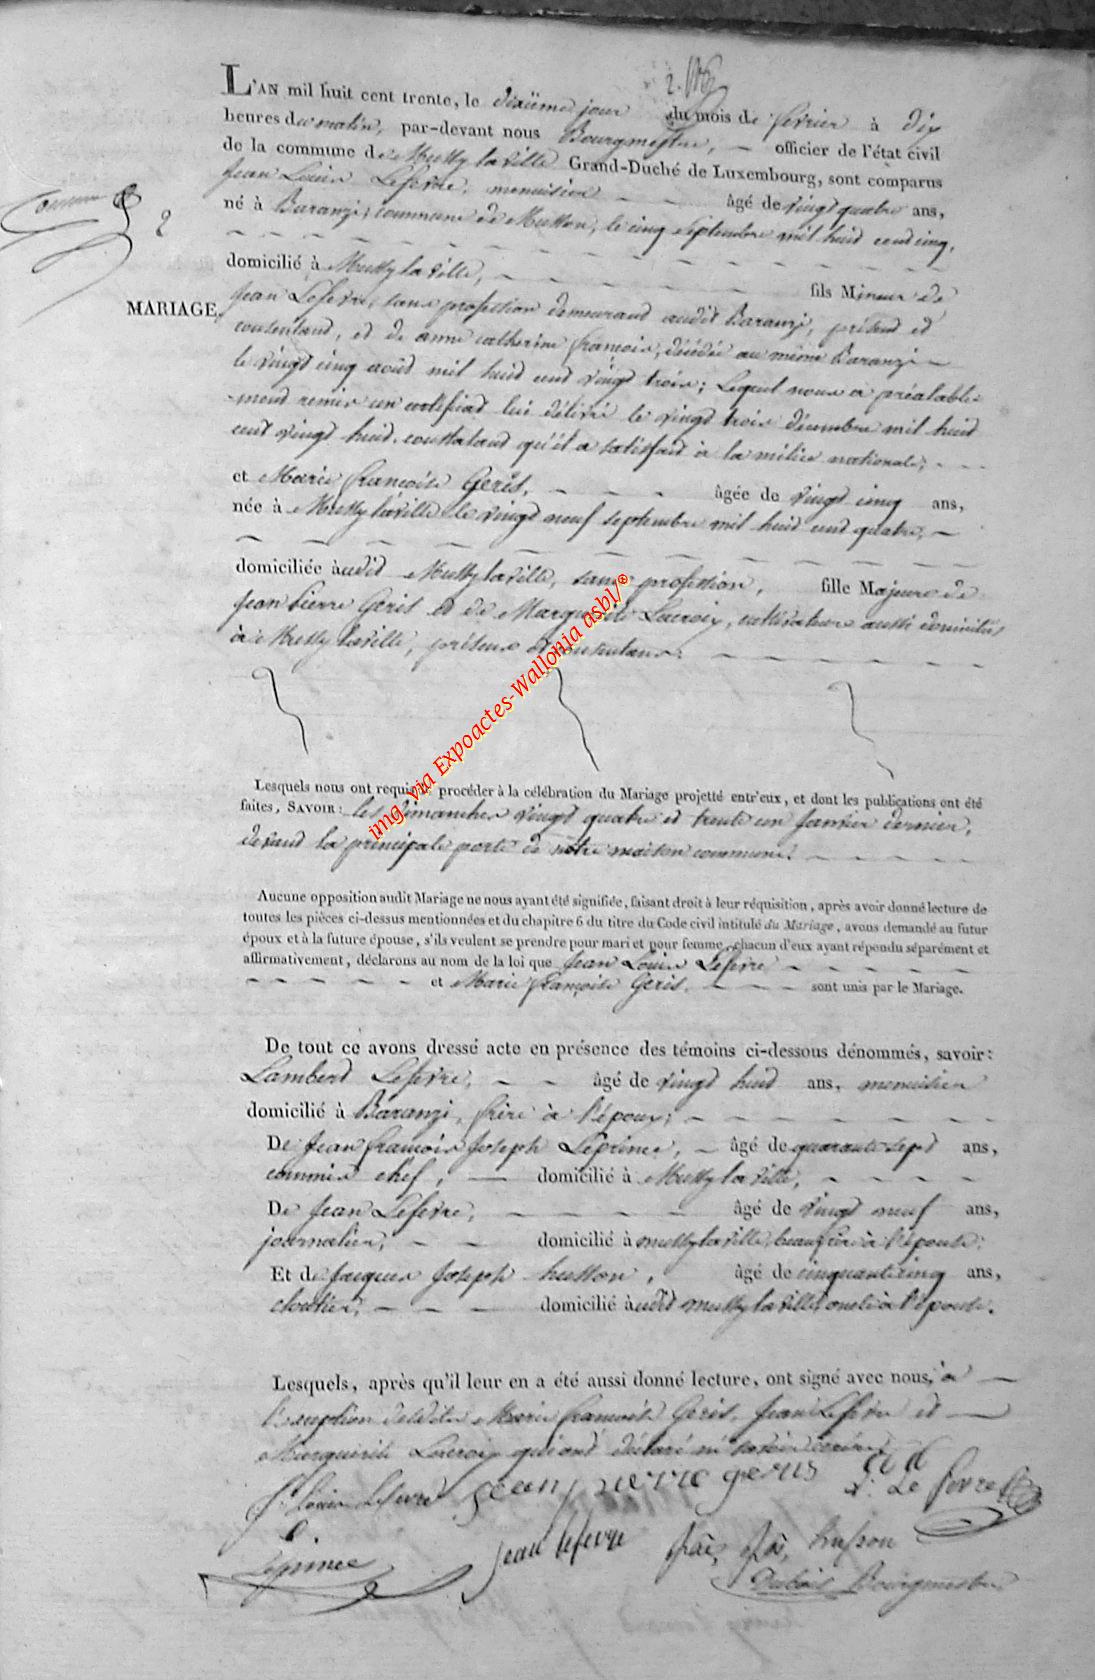 L'AN mil huit cent trente, le dixième jour du mois de février à dix
heures du matin, par-devant nous Bourgmestre, officier de l'état civil
de la commune de Mussy la ville Grand-Duché de Luxembourg, sont comparus
Jean Louis Lefevre, menuisier âgé de vingt quatre ans,
né à Baranzi, commune de Musson, le cinq septembre mil huit cent cinq,
2
domicilié à Mussy la ville, fils Mineur de
MARIAGE.
Jean Lefevre, sans profession demeurant audit Baranzi, présent et
consentant, et de anne catherine françois, décédée au même Baranzi
le vingt cinq août mil huit cent vingt trois; Lequel nous a préalable-
ment remis un certificat lui délivré le vingt trois décembre mil huit
cent vingt huit, constatant qu'il a satisfait à la milice nationale;
et Marie françoise Geris, âgée de vingt cinq ans,
née à Mussy la ville le vingt neuf septembre mil huit cent quatre,
domiciliée audit Mussy la ville, sans profession, fille Majeure de
Jean pierre Geris et de Marguerite Lacroix, cultivateurs aussi domiciliés
à Mussy la ville, présens et consentans.
Lesquels nous ont requis de procéder à la célébration du Mariage projetté entr'eux, et dont les publications ont été
faites, SAVOIR: les dimanches vingt quatre et trente un janvier dernier,
devant la principale porte de notre maison commune.
Aucune opposition audit Mariage ne nous ayant été signifiée, faisant droit à leur réquisition, après avoir donné lecture de
toutes les pièces ci-dessus mentionnées et du chapitre 6 du titre du Code civil intitulé du Mariage, avons demandé au futur
époux et à la future épouse, s'ils veulent se prendre pour mari et pour femme, chacun d'eux ayant répondu séparément et
affirmativement, déclarons au nom de la loi que Jean Louis Lefevre
et Marie françoise Geris, sont unis par le Mariage.
De tout ce avons dressé acte en présence des témoins ci-dessous dénommés, savoir:
Lambert Lefevre, âgé de vingt huit ans, menuisier
domicilié à Baranzi, frère à l'époux;
De Jean françois Joseph Leprince, âgé de quarante sept ans,
commis chef, domicilié à Mussy la ville,
De Jean Lefevre, âgé de vingt neuf ans,
journalier, domicilié à mussy la ville, beau frère à l'épouse;
Et de Jacques Joseph husson, âgé de cinquante cinq ans,
cloutier, domicilié audit mussy la ville, oncle à l'épouse.
Lesquels, après qu'il leur en a été aussi donné lecture, ont signé avec nous, à
l'exception de ladite Marie françoise Geris, Jean Lefevre et
Marguerite Lacroix qui ont déclaré ne savoir écrire.
J. Louis Lefevre jean pierre gerus L. Le fevre
Leprince jean lefevre husson
Dubois Bourgmestre
img via Expoactes-Wallonia asbl/®